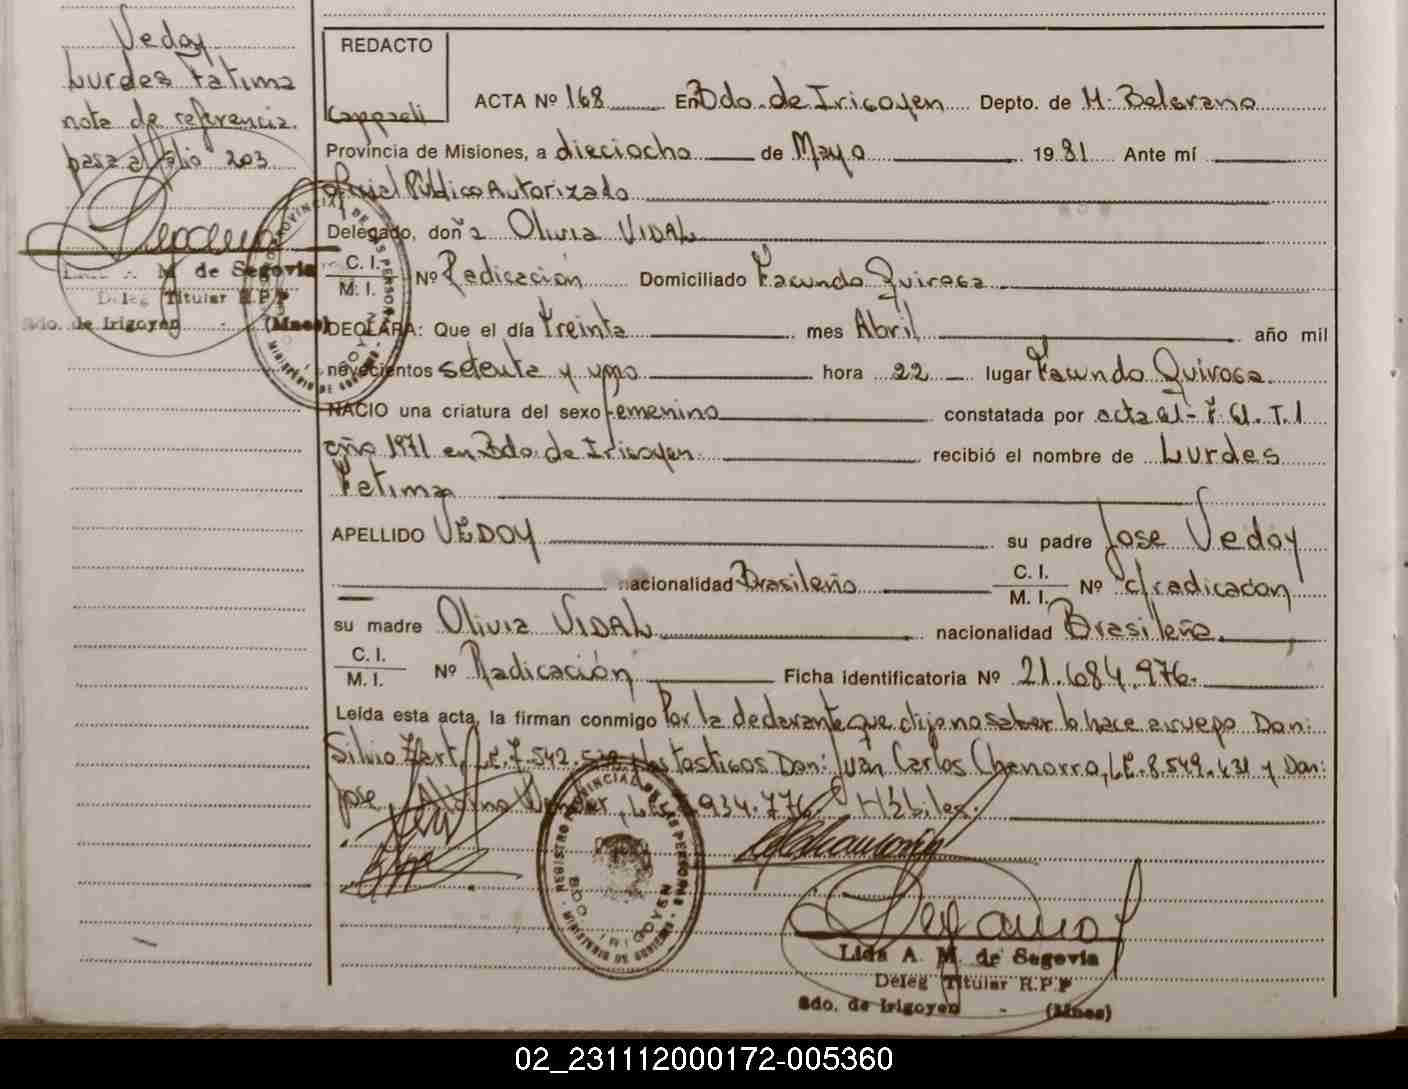 Vedoy
Lurdes Fatima
nota de referencia
pasa al folio 203
M de Segovia
Deleg Titular R.P.P
Bdo. de Irigoyen - (Mnes)
REDACTO
ACTA Nº 168 En Bdo. de Irigoyen Depto. de M. Belgrano
Provincia de Misiones, a dieciocho de Mayo 1981 Ante mí
Oficial Público Autorizado
Delegado, doña Olivia VIDAL
C. I.
M. I. Nº Radicación Domiciliado Facundo Quiroga
DECLARA: Que el día Treinta mes Abril año mil
novecientos setenta y uno hora 22 lugar Facundo Quiroga
NACIO una criatura del sexo femenino constatada por acta
año 1971 en Bdo. de Irigoyen recibió el nombre de Lurdes
Fatima
APELLIDO VEDOY su padre Jose Vedoy
nacionalidad Brasileño C. I.
M. I. Nº c/radicacion
su madre Olivia VIDAL nacionalidad Brasileña
C. I.
M. I. Nº Radicación Ficha identificatoria Nº 21.684.976.
Leída esta acta, la firman conmigo Por la declarante que dijo no saber lo hace a ruego Don:
Silvio L.E. 7.542. los testigos Don: Juan Carlos L.E. 8.549.431 y Don:
Jose 934.776. Hábiles.
REGISTRO PROVINCIAL DE LAS PERSONAS
BDO. IRIGOYEN
MINISTERIO DE GOBIERNO
Lida A. M. de Segovia
Deleg Titular R.P.P
Bdo. de Irigoyen - (Mnes)
02_231112000172-005360